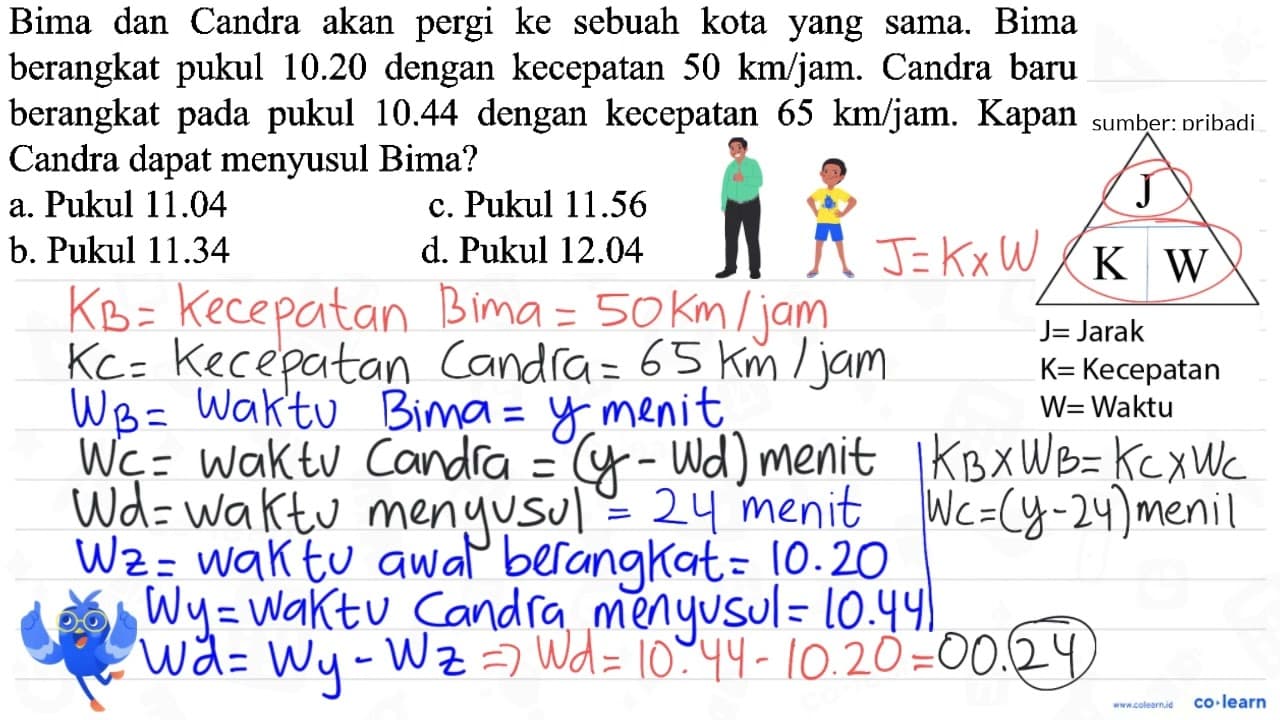 Bima dan Candra akan pergi ke sebuah kota yang sama. Bima
berangkat pukul 10.20 dengan kecepatan 50 km/jam. Candra baru
berangkat pada pukul 10.44 dengan kecepatan 65 km/jam. Kapan
Candra dapat menyusul Bima?
a. Pukul 11.04 c. Pukul 11.56
b. Pukul 11.34 d. Pukul 12.04
sumber: pribadi
J
K W
J= Jarak
K= Kecepatan
W= Waktu
J=K×W
KB= Kecepatan Bima = 50 Km/jam
KC= Kecepatan Candra= 65 Km/jam
WB= Waktu Bima= y menit
WC= waktu Candra = (y-Wd) menit
Wd=waktu menyusul = 24 menit
Wz= waktu awal berangkat= 10.20
Wy=waktu Candra menyusul=10.44
Wd= Wy-Wz => Wd= 10.44-10.20=00.24
KB×WB=KC×WC
WC=(y-24)menit
www.colearn.id co·learn